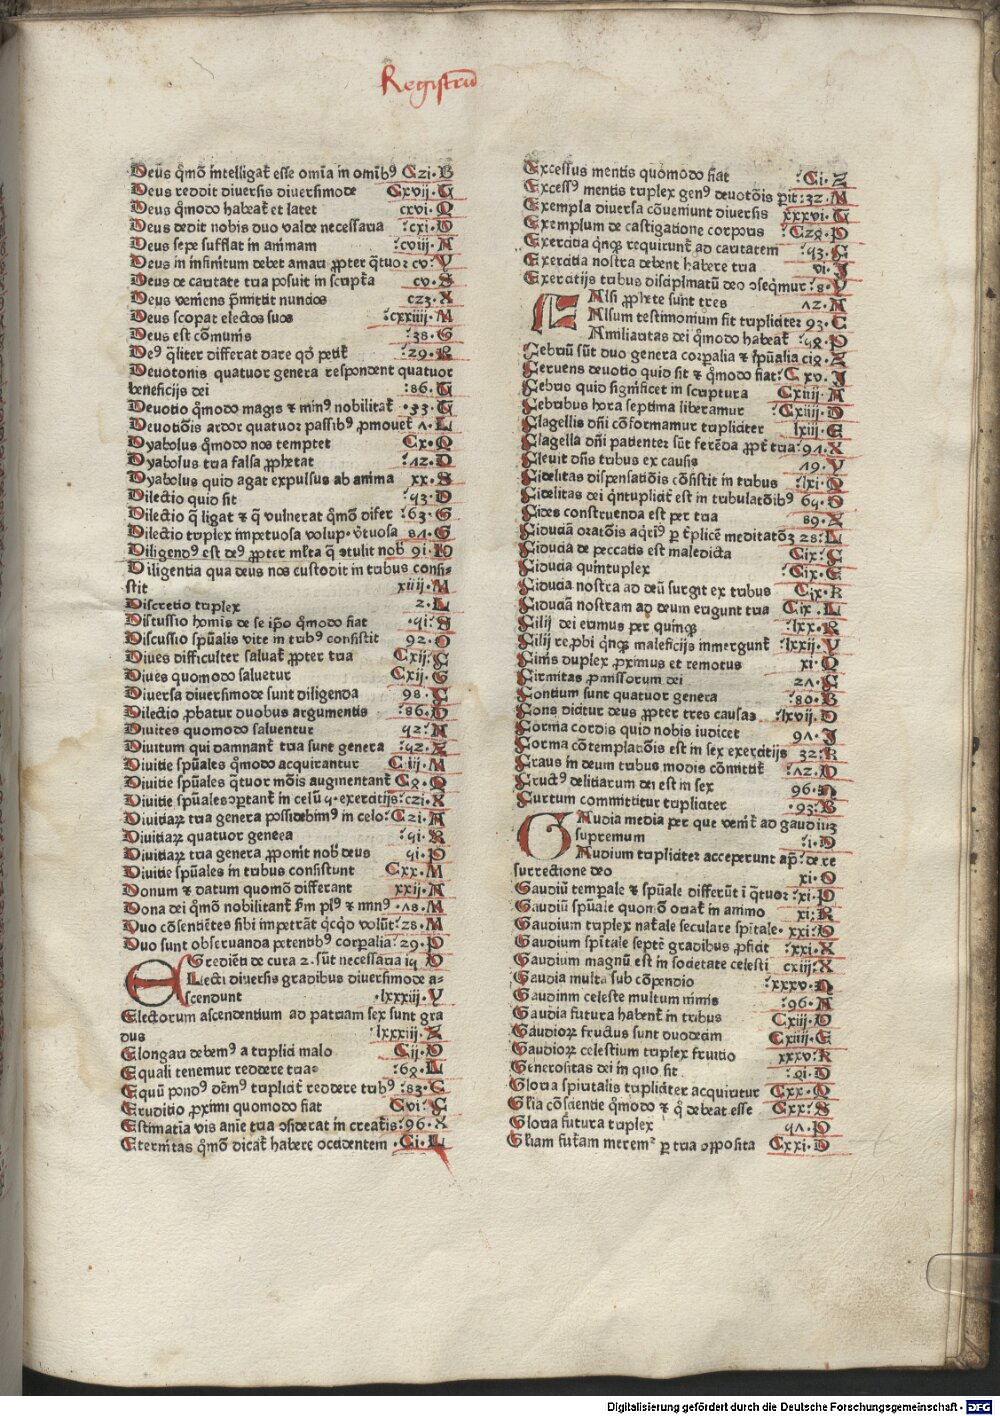 Registrū
Deus q̄mō intelligat̄ esse omīa in omib⁹ Czi·B
Deus reddit diuersis diuersimode Cxvij·G
Deus q̄modo habeat̄ et latet cxvi·Q
Deus dedit nobis duo valde necessaria :cxi·O
Deus sepe sufflat in animam :cviij·A
Deus in infinitum debet amari ꝓpter q̄tuor cv·Y
Deus de caritate tria posuit in script̄a cv·S
Deus veniens p̄mittit nuncios cz3·X
Deus scopat electos suos :cxxiiij·M
Deus est cōmunis :38·G
De⁹ q̄liter differat dare qd̄ petit̄ :29·R
Deuotonis quatuor genera respondent quatuor
beneficijs dei :86·G
Deuotio q̄modo magis ⁊ min⁹ nobilitat̄ ·33·G
Deuotiōis ardor quatuor passib⁹ ꝓmouet̄ ʌ·L
Dyabolus q̄modo nos temptet Cx·Q
Dyabolus tria falsa ꝓphetat :ʌz·D
Dyabolus quid agat expulsus ab anima xx·S
Dilectio quid sit :93·D
Dilectio q̄ ligat ⁊ q̄ vulnerat q̄mō difer :63·G
Dilectio triplex impetuosa volup· v̄tuosa 8ʌ·G
Diligend⁹ est de⁹ ꝓpter ml̄ta q̄ ꝯtulit nob̄ 9i·D
Diligentia qua deus nos custodit in tribus consi-
stit xiiij·M
Discretio triplex 2·L
Discussio homis de se ip̄o q̄modo fiat ·qi·S
Discussio spūalis vite in trib⁹ consistit 92·O
Diues difficulter saluat̄ ꝓpter tria Cxij·C
Diues quomodo saluetur Cxij·G
Diuersa diuersimode sunt diligenda 98·C
Dilectio ꝓbatur duobus argumentis :86·D
Diuites quomodo saluentur q2·A
Diuitum qui damnant̄ tria sunt genera :q2·Z
Diuitie spūales q̄modo acquirantur Ciij·M
Diuitie spūales q̄tuor mōis augmentant̄ C8·Q
Diuitie spūales ꝯptant̄ in celū q· exercitijs :czi·X
Diuitiaꝝ tria genera possidebim⁹ in celo :Czi·A
Diuitiaꝝ quatuor geneea :qi·R
Diuitiaꝝ tria genera ꝓponit nob̄ deus qi·P
Diuitie spūales in tribus consistunt Cxx·M
Donum ⁊ datum quomō differant xxij·A
Dona dei q̄mō nobilitant̄ s̄m pl⁹ ⁊ min⁹ ·ʌ8·M
Duo cōsentiētes sibi impetrāt q̄cq̄d volūt :28·M
Duo sunt obseruanda petentib⁹ corp̄alia :29·P
EGrediēti de cura 2·sūt necessaria iq D
Lecti diuersis gradibus diuersimode a-
scendunt ·lxxxiij·Y
Electorum ascendentium ad patriam sex sunt gra
dus :lxxxiij·Z
Elongari debem⁹ a triplici malo Cij·O
Equali tenemur reddere tria· :68·L
Equū pond⁹ dēm⁹ triplicit̄ reddere trib⁹ :83·C
Eruditio ꝓximi quomodo fiat Cvi·C
Estimatia vis anie tria ꝯsiderat in creat̄is :96·X
Eternitas q̄mō dicat̄ habere occidentem ·Ci·L
Excessus mentis quōmodo fiat :Ci·Z
Excess⁹ mentis triplex gen⁹ deuotōis ꝑit :32·M
Exempla diuersa cōueniunt diuersis xxxvi·G
Exemplum de castigatione corporis :Cz8·P
Exercitia q̄nqꝫ requirunt̄ ad caritatem :93·C
Exercitia nostra debent habere tria vi·I
Exercitijs tribus disciplinatū deo ꝯseq̄mur :8·Y
FAlsi ꝓphete sunt tres ʌz·A
Alsum testimonium fit tripliciter 93·C
Amiliaritas dei q̄modo habeat̄ :q8·P
Febriū sūt duo genera corꝑalia ⁊ sp̄ualia ciq·Z
Feruens deuotio quid sit ⁊ q̄modo fiat :Cxv·I
Febris quid significet in scriptura Cxiiij·A
Febribus hora septima liberamur :Cxiiij·D
Flagellis dn̄i cōformamur tripliciter lxiij·E
Flagella dn̄i patienter sūt ferēda ꝓpt̄ tria :9ʌ·X
Fleuit dn̄s tribus ex causis ʌ9·Y
Fidelitas dispensatiōis cōsistit in tribus :lxi·Q
Fidelitas dei q̄ntuplicit̄ est in tribulatōib⁹ 69·O
Fides construenda est per tria 89·Z
Fiduciā oratōis aq̄rim⁹ ꝑ t̄plicē meditatōꝫ 28·L
Fiducia de peccatis est maledicta Cix·C
Fiducia quintuplex :Cix·E
Fiducia nostra ad deū surgit ex tribus Cix·R
Fiduciā nostram ad deum erigunt tria Cix·L
Filij dei erimus per quinqꝫ :lxx·R
Filij rep̱bi q̄nqꝫ maleficijs immergunt̄ :lxxij·Y
Finis duplex ꝓximus et remotus xi·Q
Firmitas ꝓmissorum dei 2ʌ·C
Fontium sunt quatuor genera :80·B
Fons dicitur deus ꝓpter tres causas :lxvij·D
Forma cordis quid nobis indicet 9ʌ·I
Forma cōtemplatiōis est in sex exercitijs 32·R
Fraus in deum tribus modis cōmittit̄ :ʌz·D
Fruct⁹ delitiarum dei est in sex 96·n
Furtum committitur tripliciter ·93·B
GAudia media per que venit̄ ad gaudiuꝫ
supremum :i·D
Audium tripliciter acceperunt ap̄i de re
surrectione deo xi·O
Gaudiū tempale ⁊ spūale differūt ī q̄tuor :xi·P
Gaudiū spūale quomō oriat̄ in animo xi·R
Gaudium triplex nat̄ale seculare spirita̅le· xxi·D
Gaudium spir̄itale septē gradibus ꝓficit :xxi·X
Gaudium magnū est in societate celesti cxiij·X
Gaudia multa sub cōpendio :xxxv·n
Gaudium celeste multum nimis :96·A
Gaudia futura habent̄ in tribus Cxiij·D
Gaudioꝝ fructus sunt duodecim Cxiiij·E
Gaudioꝝ celestium triplex fruitio xxxv·R
Generositas dei in quo sit :9i·D
Gloria spiritalis tripliciter acquiritur Cxx·Q
Gl̄ia cōscientie q̄modo ⁊ q̄ debeat esse Cxx·S
Gloria futura triplex qʌ·P
Gl̄iam fut̄am merem⁊ ꝑ tria ꝯꝓposita Cxxi·D
Digitalisierung gefördert durch die Deutsche Forschungsgemeinschaft · DFG